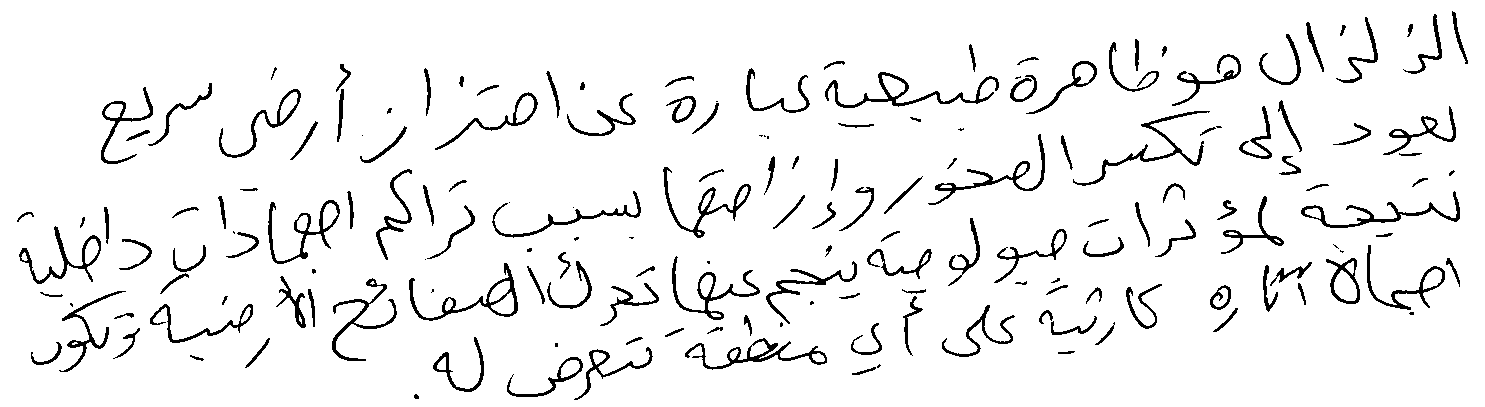 الزلزال هو ظاهرة طبيعية عبارة عن اهتزاز أرضي سريع
يعود إلى تكسر الصخور وإزاحتها بسبب تراكم اجهادات داخلية
نتيجة لمؤثرات جيولوجية ينجم عنها تحرك الصفائح الأرضية وتكون
اجمالا آثاره كارثية على أي منطقة تتعرض له.